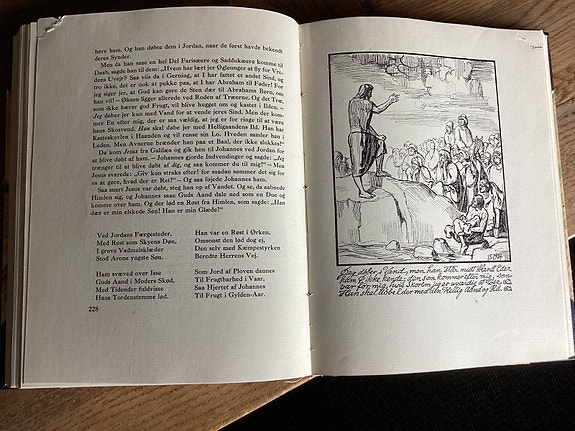 høre ham. Og han døbte dem i Jordan, naar de først havde bekendt
deres Synder.
Men da han saae en hel Del Farisæere og Saddukæere komme til
Daab, sagde han til dem: „Hvem har lært jer Øgleunger at fly for Vre-
dens Uvejr? Saa viis da i Gerning, at I har fattet et andet Sind, og
tro ikke, det er nok at pukke paa, at I har Abraham til Fader! For
jeg siger jer, at Gud kan gøre de Sten der til Abrahams Børn, om
han vil! — Øksen ligger allerede ved Roden af Træerne. Og det Træ,
som ikke bærer god Frugt, vil blive hugget om og kastet i Ilden. —
Jeg døber jer kun med Vand for at vende jeres Sind. Men der kom-
mer En efter mig, der er saa vældig, at jeg er for ringe til at være
hans Skosvend. Han skal døbe jer med Helligaandens Ild. Han har
Kasteskovlen i Haanden og vil rense sin Lo. Hveden samler han i
Laden. Men Avnerne brænder han paa et Baal, der ikke slukkes!"
Da kom Jesus fra Galilæa og gik hen til Johannes ved Jordan for
at blive døbt af ham. — Johannes gjorde Indvendinger og sagde: „Jeg
trænger til at blive døbt af dig, og saa kommer du til mig!" — Men
Jesus svarede: „Giv kun straks efter! for saadan sømmer det sig for
os at gøre, hvad der er Ret!" — Og saa føjede Johannes ham.
Saa snart Jesus var døbt, steg han op af Vandet. Og se, da aabnede
Himlen sig, og Johannes saae Guds Aand dale ned som en Due og
komme over ham. Og der lød en Røst fra Himlen, som sagde: „Han
dær er min elskede Søn! Han er min Glæde!"
Ved Jordans Færgesteder,
Med Røst som Skyens Døn,
I grove Vadmelsklæder
Stod Arons yngste Søn.
Ham svæved over Isse
Guds Aand i Moders Skød,
Med Tidender fuldvisse
Hans Tordenstemme lød.
Han var en Røst i Ørken,
Omsonst den lød dog ej,
Den selv med Kæmpestyrken
Beredte Herrens Vej.
Som Jord af Ploven dannes
Til Frugtbarhed i Vaar,
Saa Hjertet af Johannes
Til Frugt i Gylden-Aar.
228
Jeg døber i Vand, men han staar midt iblandt Eder
ham I ikke kende; den som kommer efter mig, som
var før mig, hvis Skorem jeg er uværdig at løse.
Han skal døbe Eder med den Hellig Aand og Ild.